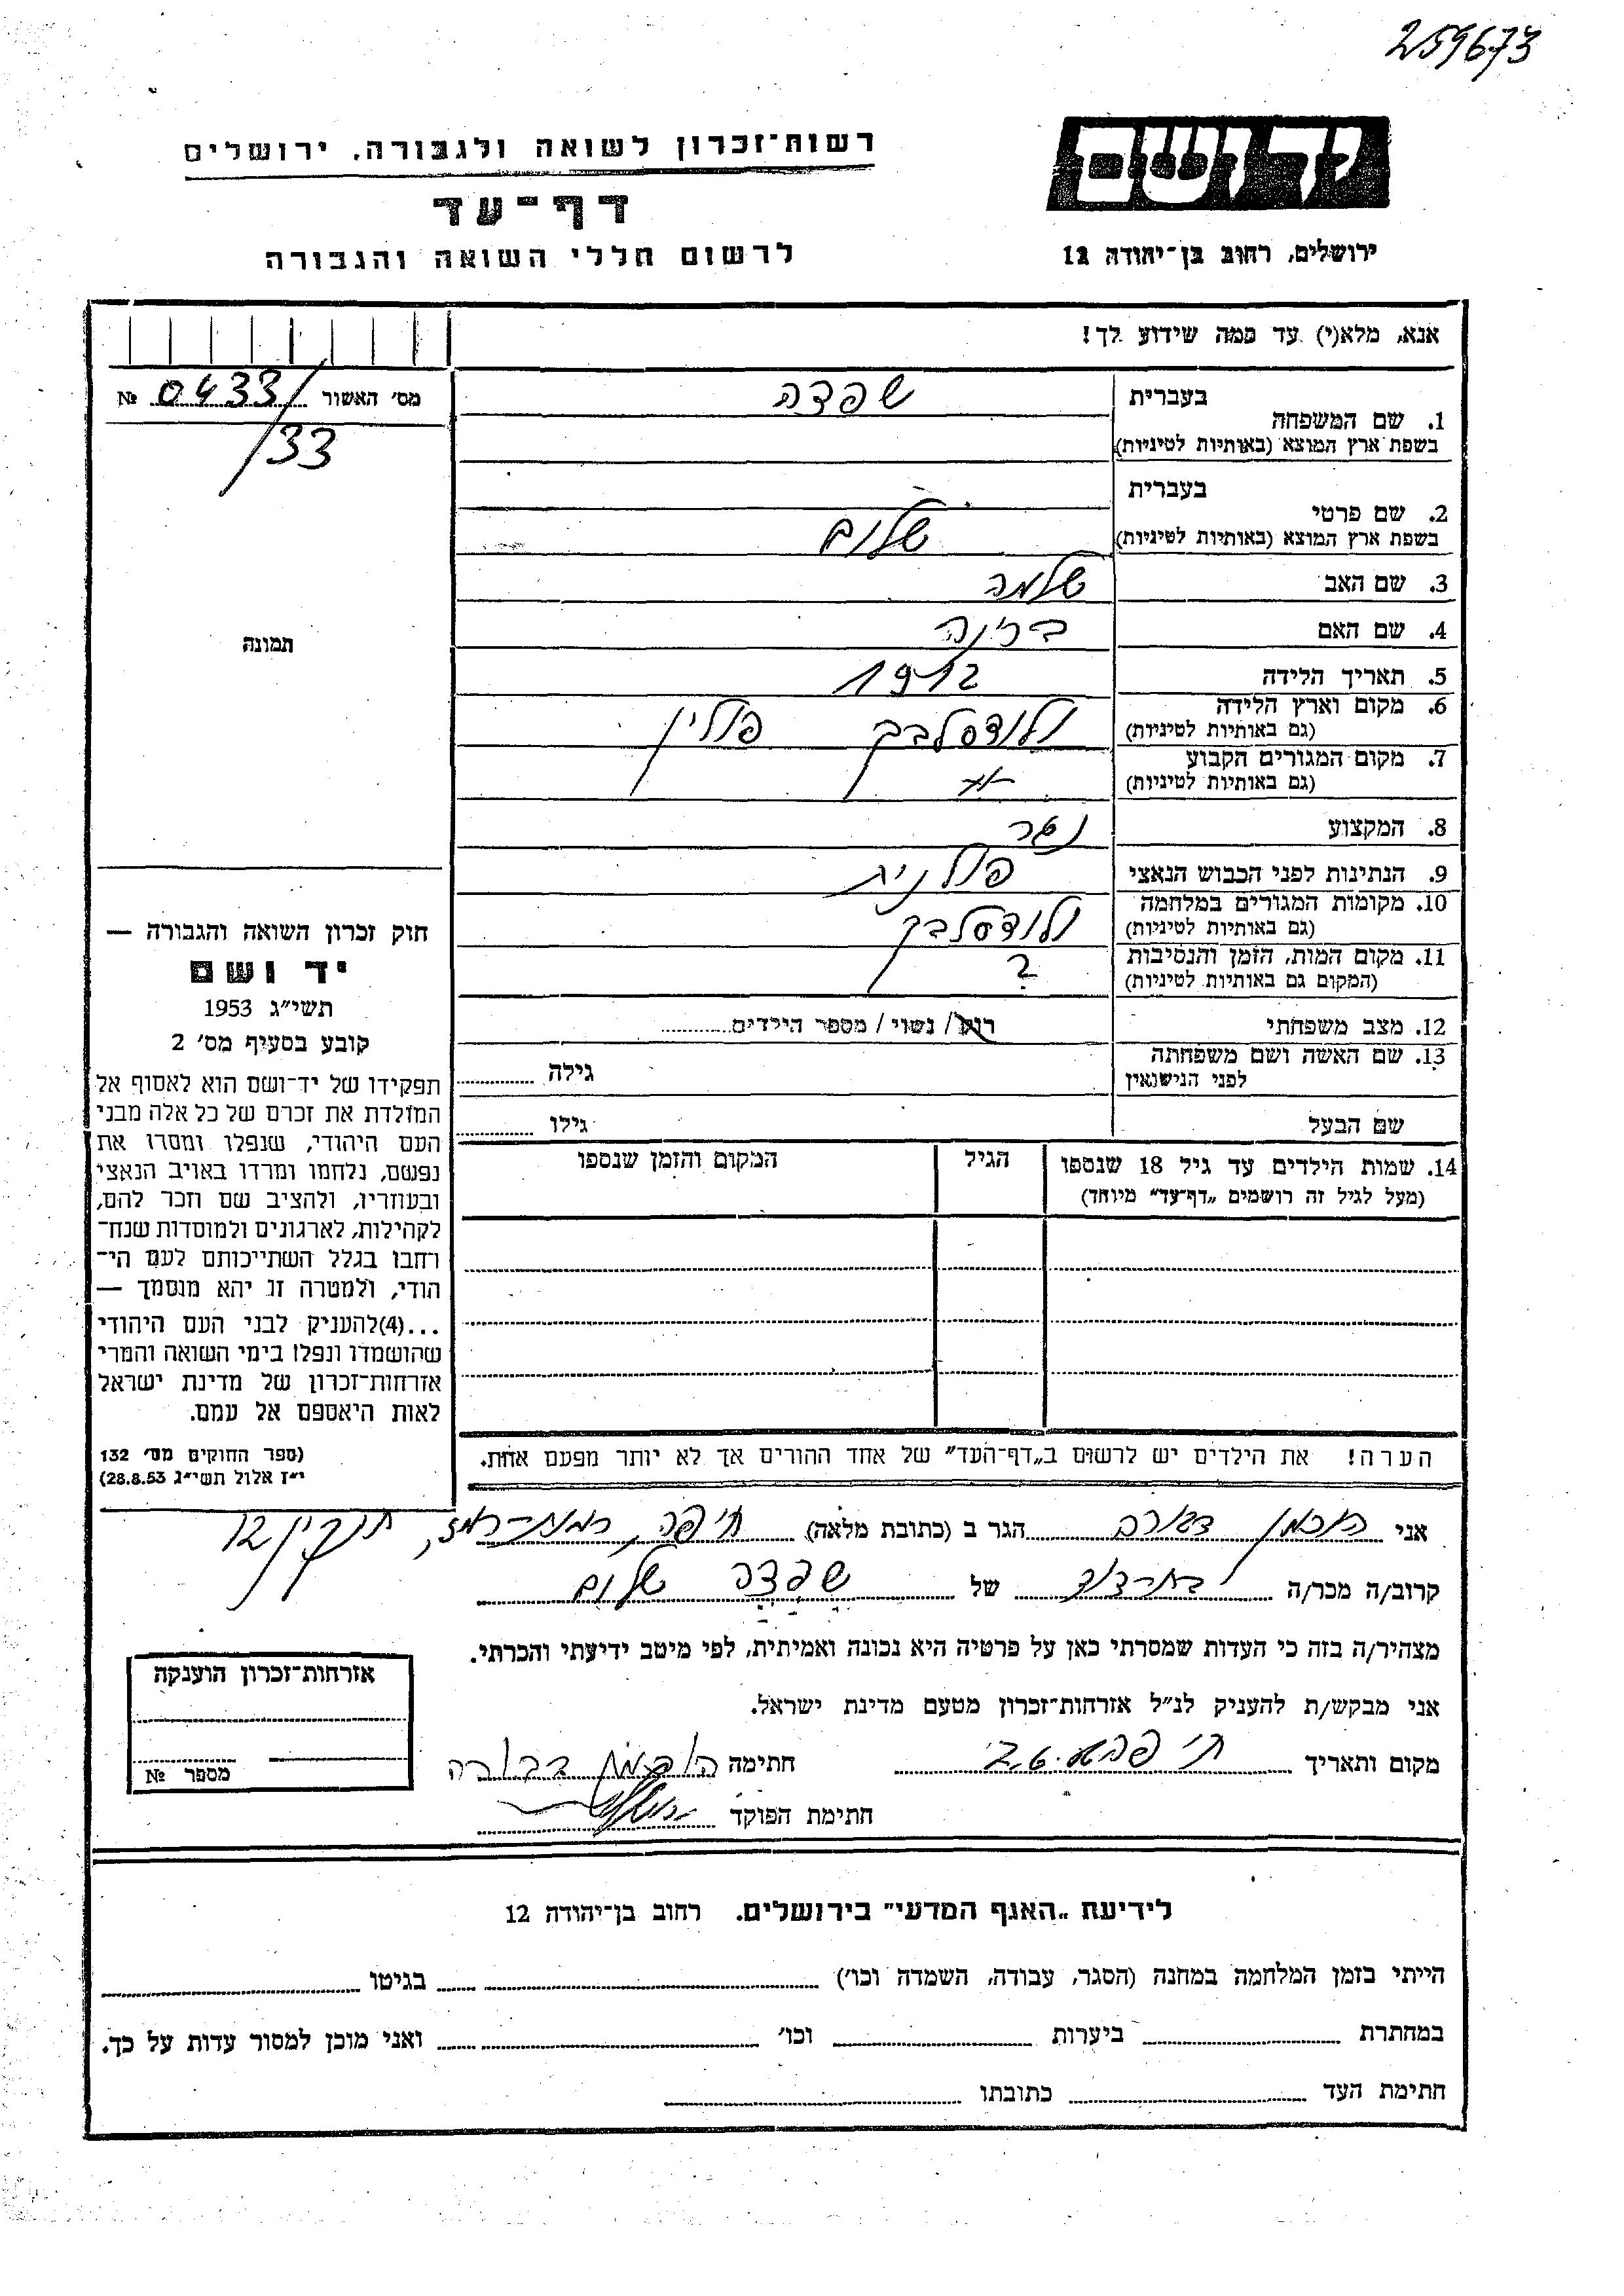 259673
יד ושם
ירושלים, רחוב בן־יהודה 12
רשות־זכרון לשואה ולגבורה, ירושלים
דף־עד
לרשום חללי השואה והגבורה
אנא, מלא(י) עד כמה שידוע לך!
מס׳ האשור 0433/ №
/33
תמונה
1. שם המשפחה בעברית
בשפת ארץ המוצא (באותיות לטיניות)
2. שם פרטי בעברית
בשפת ארץ המוצא (באותיות לטיניות) שלום
3. שם האב שלמה
4. שם האם
5. תאריך הלידה 1912
6. מקום וארץ הלידה ולודסלבק פולין
(גם באותיות לטיניות)
7. מקום המגורים הקבוע
(גם באותיות לטיניות)
8. המקצוע נגר
9. הנתינות לפני הכבוש הנאצי פולנית
10. מקומות המגורים במלחמה ולודסלבק
(גם באותיות לטיניות)
11. מקום המות, הזמן והנסיבות ?
(המקום גם באותיות לטיניות)
12. מצב משפחתי רווק / נשוי / מספר הילדים
13. שם האשה ושם משפחתה
לפני הנישואין גילה
שם הבעל גילו
14. שמות הילדים עד גיל 18 שנספו הגיל המקום והזמן שנספו
(מעל לגיל זה רושמים „דף־עד” מיוחד)
הערה! את הילדים יש לרשום ב„דף־העד” של אחד ההורים אך לא יותר מפעם אחת.
חוק זכרון השואה והגבורה —
יד ושם
תשי״ג 1953
קובע בסעיף מס׳ 2
תפקידו של יד־ושם הוא לאסוף אל
המולדת את זכרם של כל אלה מבני
העם היהודי, שנפלו ומסרו את
נפשם, נלחמו ומרדו באויב הנאצי
ובעוזריו, ולהציב שם וזכר להם,
לקהילות, לארגונים ולמוסדות שנח־
רבו בגלל השתייכותם לעם הי־
הודי, ולמטרה זו יהא מוסמך —
...(4)להעניק לבני העם היהודי
שהושמדו ונפלו בימי השואה והמרי
אזרחות־זכרון של מדינת ישראל
לאות היאספם אל עמם.
(ספר החוקים מס׳ 132
י״ז אלול תשי״ג 28.8.53)
אני דבורה הגר ב (כתובת מלאה) חיפה, רמת־רמז, 12
קרוב/ה מכר/ה של שלום
מצהיר/ה בזה כי העדות שמסרתי כאן על פרטיה היא נכונה ואמיתית, לפי מיטב ידיעתי והכרתי.
אני מבקש/ת להעניק לנ״ל אזרחות־זכרון מטעם מדינת ישראל.
מקום ותאריך חיפה חתימה דבורה
חתימת הפוקד
אזרחות־זכרון הוענקה
מספר №
לידיעת „האגף המדעי” בירושלים. רחוב בן־יהודה 12
הייתי בזמן המלחמה במחנה (הסגר, עבודה, השמדה וכו׳) בגיטו
במחתרת ביערות וכו׳ ואני מוכן למסור עדות על כך.
חתימת העד כתובתו